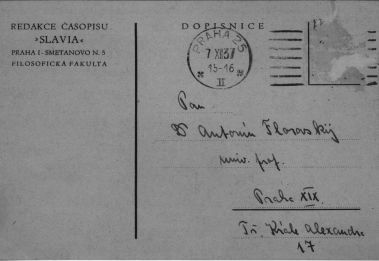 REDAKCE ČASOPISU
»SLAVIA«
PRAHA I - SMETANOVO N. 5
FILOSOFICKÁ FAKULTA
DOPISNICE
PRAHA 25
7 XII 37
15-16
II
Pan
Dr Antonín Florovskij
univ. prof.
Praha XIX.
Tř. Krále Alexandra
17